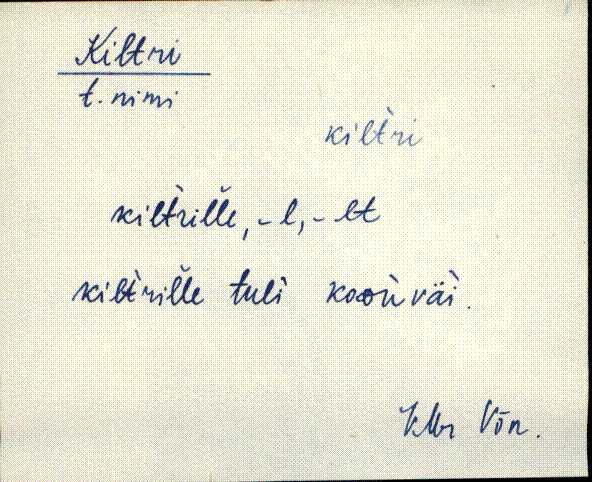 Kiltri
t. nimi
kilt̀ri
kilt̀rille, -l, -lt
kilt̀rille tuli
Võn.